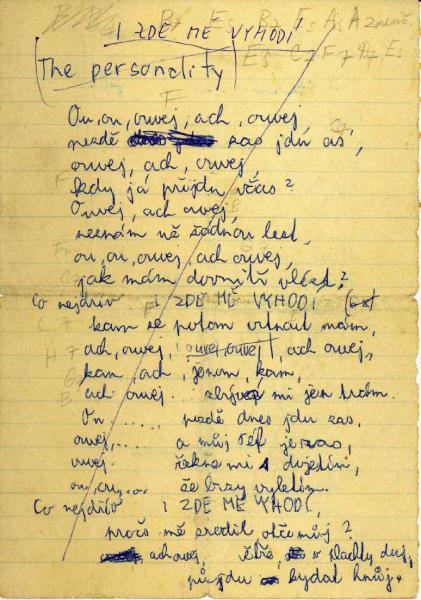 B7 Es B7 Es As A zmenš.
I ZDE MĚ VYHODÍ
Es C7 F7 B7 Es
(The personality)
F
Ou, ou, ouvej, ach, ouvej
pozdě zas jdu
ouvej, ach, ouvej,
kdy já přijdu včas?
Ouvej, ach ouvej,
neznám už žádnou lest,
ou, ou, ouvej, ach ouvej,
jak mám dovnitř vlézt?
Co nejdřív I ZDE MĚ VYHODÍ
kam se potom vrtnout mám,
ach, ouvej, ouvej, ouvej, ach ouvej,
kam, ach, jenom, kam,
ach ouvej.. zbývá mi jen krám.
Ou ..... pozdě dnes jdu zas,
ouvej,.... a můj šéf je zas,
ouvej. řekne mi
ou, ou,... že brzy vyletím.
Co nejdřív I ZDE MĚ VYHODÍ,
pročs mě zredil otče můj?
ach ouvej, v
půjdu kydat hnůj.